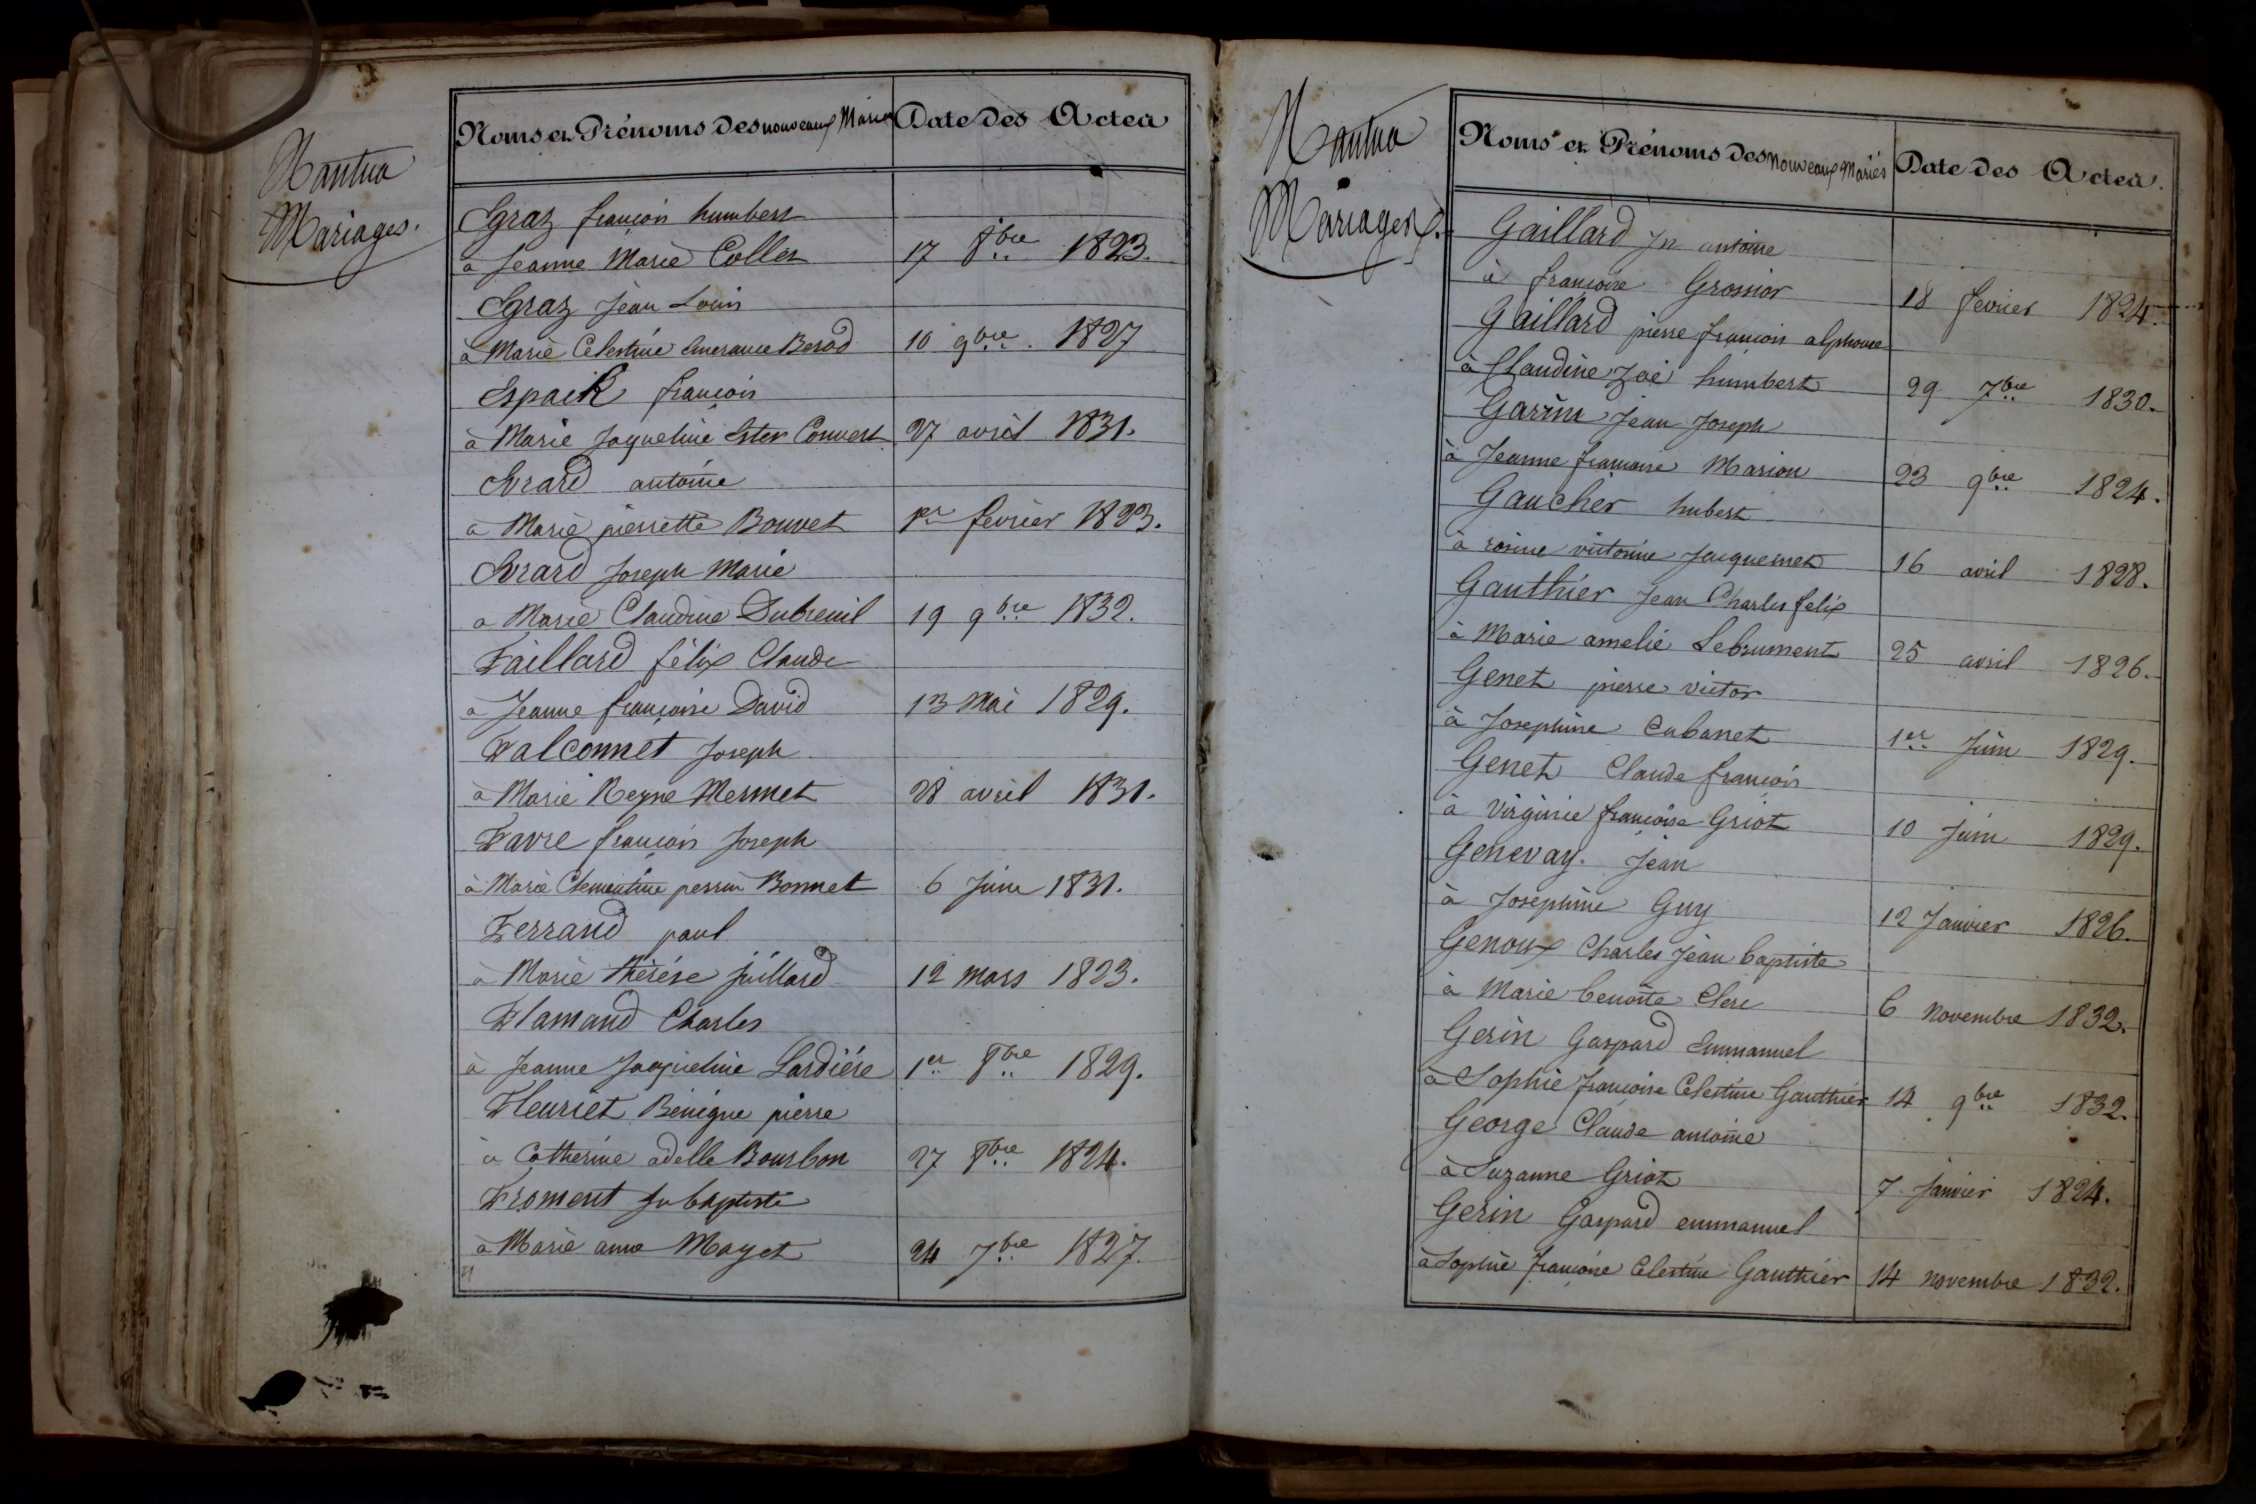 Nantua
Mariages.
Noms et Prénoms des nouveaux Mariés Date des Actes
Egraz françois humbert
à Jeanne Marie Collet 17 8bre 1823.
Egraz Jean Louis
à Marie Celestine Emerance Berod 10 9bre. 1827
Espaik françois
à Marie Jaqueline Ester Convert 27 avril 1831.
Evrard antoine
à Marie pierrette Bouvet 1er fevrier 1823.
Evrard Joseph Marie
a Marie Claudine Dubreuil 19 9bre 1832.
Faillard félix Claude
à Jeanne françoise David 13 Mai 1829.
Falconnet Joseph
à Marie Reyne Mermet 28 avril 1831.
Favre françois Joseph
à Marie Clementine perrin Bonnet 6 Juin 1831.
Ferrand paul
à Marie thérése juillard 12 mars 1823.
Flamand Charles
à Jeanne Jaqueline Lardiére 1er 8bre 1829.
Fleuriet Bénigne pierre
à Catherine adelle Bourbon 27 8bre 1824.
Froment Jn baptiste
à Marie anne Mayet 24 7bre 1827.
Nantua
Mariages.
Noms et Prénoms des Nouveaux Mariés Date des Actes.
Gaillard Jn antoine
à françoise Grosnior 18 fevrier 1824.
Gaillard pierre françois alphonse
à Claudine Zoé humbert 29 7bre 1830.
Garin Jean Joseph
à Jeanne françoise Marion 23 9bre 1824.
Gaucher hubert
à rosine victorine Jacquemet 16 avril 1828.
Gauthier Jean Charles felix
à Marie amelie Lebrument 25 avril 1826.
Genet pierre victor
à Josephine Cabanet 1er Juin 1829.
Genet Claude françois
à Virginie françoise Griot 10 Juin 1829.
Genevay. Jean
à Josephine Guy 12 Janvier 1826.
Genoux Charles Jean baptiste
à Marie benoite Clerc 6 Novembre 1832.
Gerin Gaspard Emmanuel
à Sophie françoise Celestine Gauthier 14 9bre 1832.
George Claude antoine
à Suzanne Griot 7 Janvier 1824.
Gerin Gaspard emmanuel
à Sophie françoise Celestine Gauthier 14 novembre 1832.